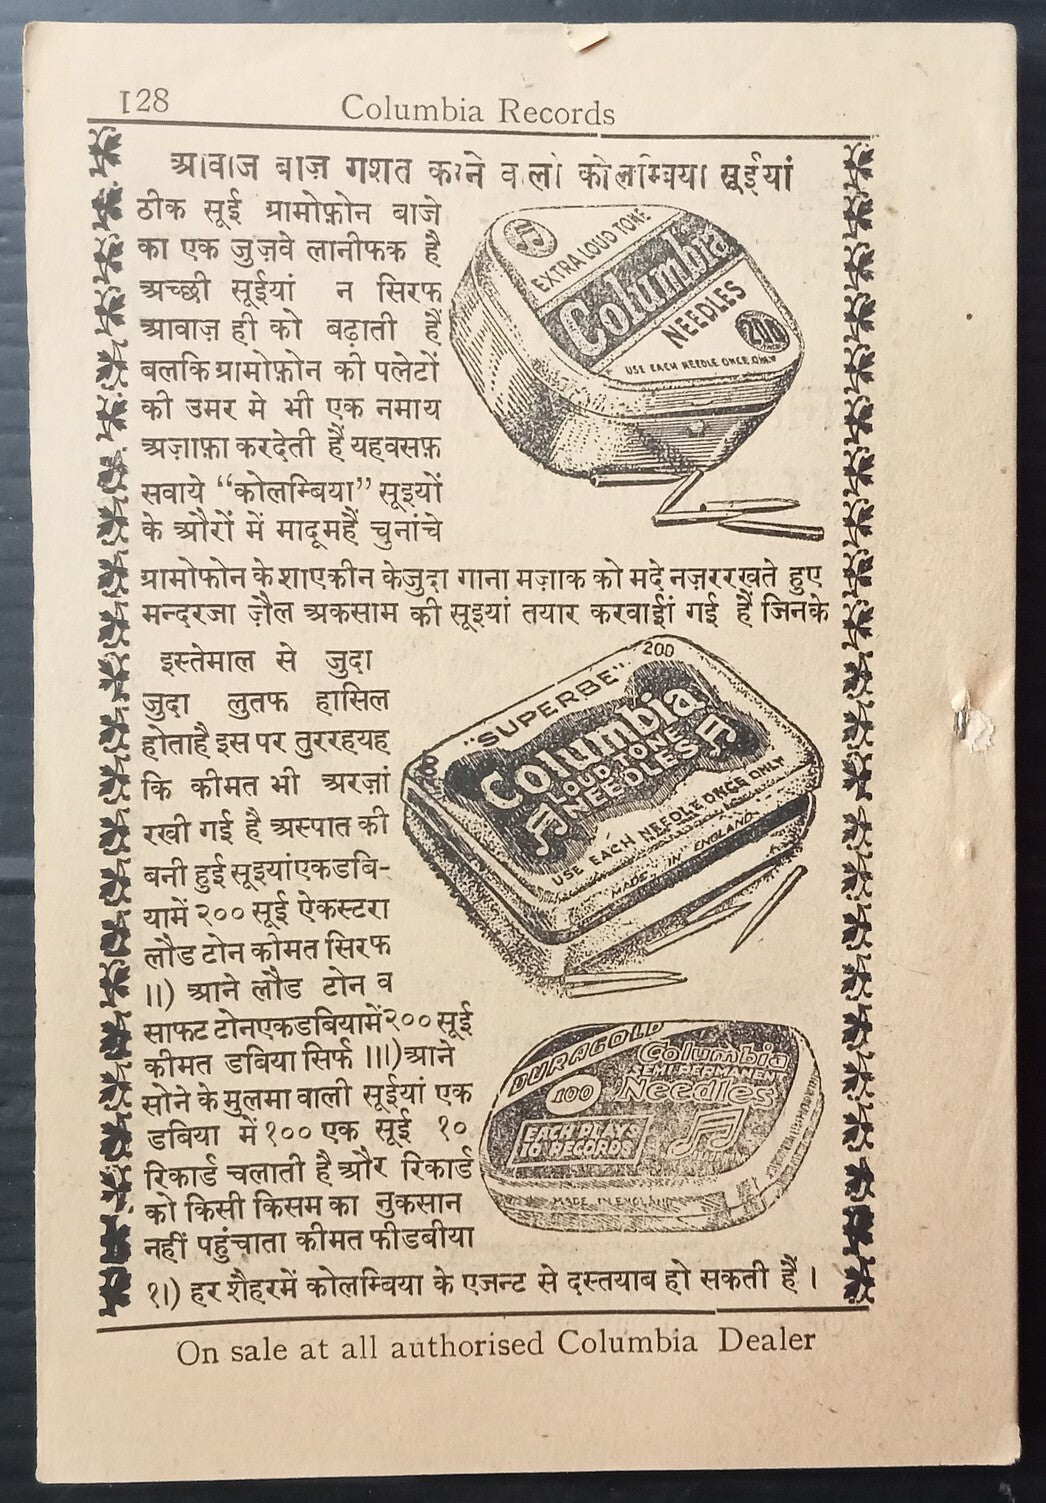 128
Columbia Records
आवाज बाज़ गशत करने वाली कोलम्बिया सूईयां
ठीक सूई ग्रामोफ़ोन बाजे
का एक जुज़वे लानीफक है
अच्छी सूईयां न सिरफ
आवाज़ ही को बढ़ाती हैं
बलकि ग्रामोफ़ोन की पलेटों
की उमर मे भी एक नमाय
अज़ाफ़ा करदेती हैं यहवसफ़
सवाये “कोलम्बिया” सूइयों
के औरों में मादूमहैं चुनांचे
EXTRA LOUD TONE
Columbia
NEEDLES
200
USE EACH NEEDLE ONCE ONLY
ग्रामोफोन के शाएकीन केजुदा गाना मज़ाक को मदे नज़ररखते हुए
मन्दरजा ज़ैल अकसाम की सूइयां तयार करवाईां गई हैं जिनके
इस्तेमाल से जुदा
जुदा लुतफ हासिल
होताहै इस पर तुररहयह
कि कीमत भी अरज़ां
रखी गई है अस्पात की
बनी हुई सूइयांएकडबि-
यामें २०० सूई ऐकस्टरा
लौड टोन कीमत सिरफ
॥) आने लौड टोन व
साफट टोनएकडबियामें२०० सूई
कीमत डबिया सिर्फ ॥।)आने
सोने के मुलमा वाली सूईयां एक
डबिया में १०० एक सूई १०
रिकार्ड चलाती है और रिकार्ड
को किसी किसम का नुकसान
नहीं पहुंचाता कीमत फीडबीया
१।) हर शैहरमें कोलम्बिया के एजन्ट से दस्तयाब हो सकती हैं ।
"SUPERBE" 200
Columbia
LOUD TONE
NEEDLES
USE EACH NEEDLE ONCE ONLY
MADE IN ENGLAND
DURAGOLD
Columbia
SEMI-PERMANENT
Needles
100
EACH PLAYS
10 RECORDS
MADE IN ENGLAND
On sale at all authorised Columbia Dealer